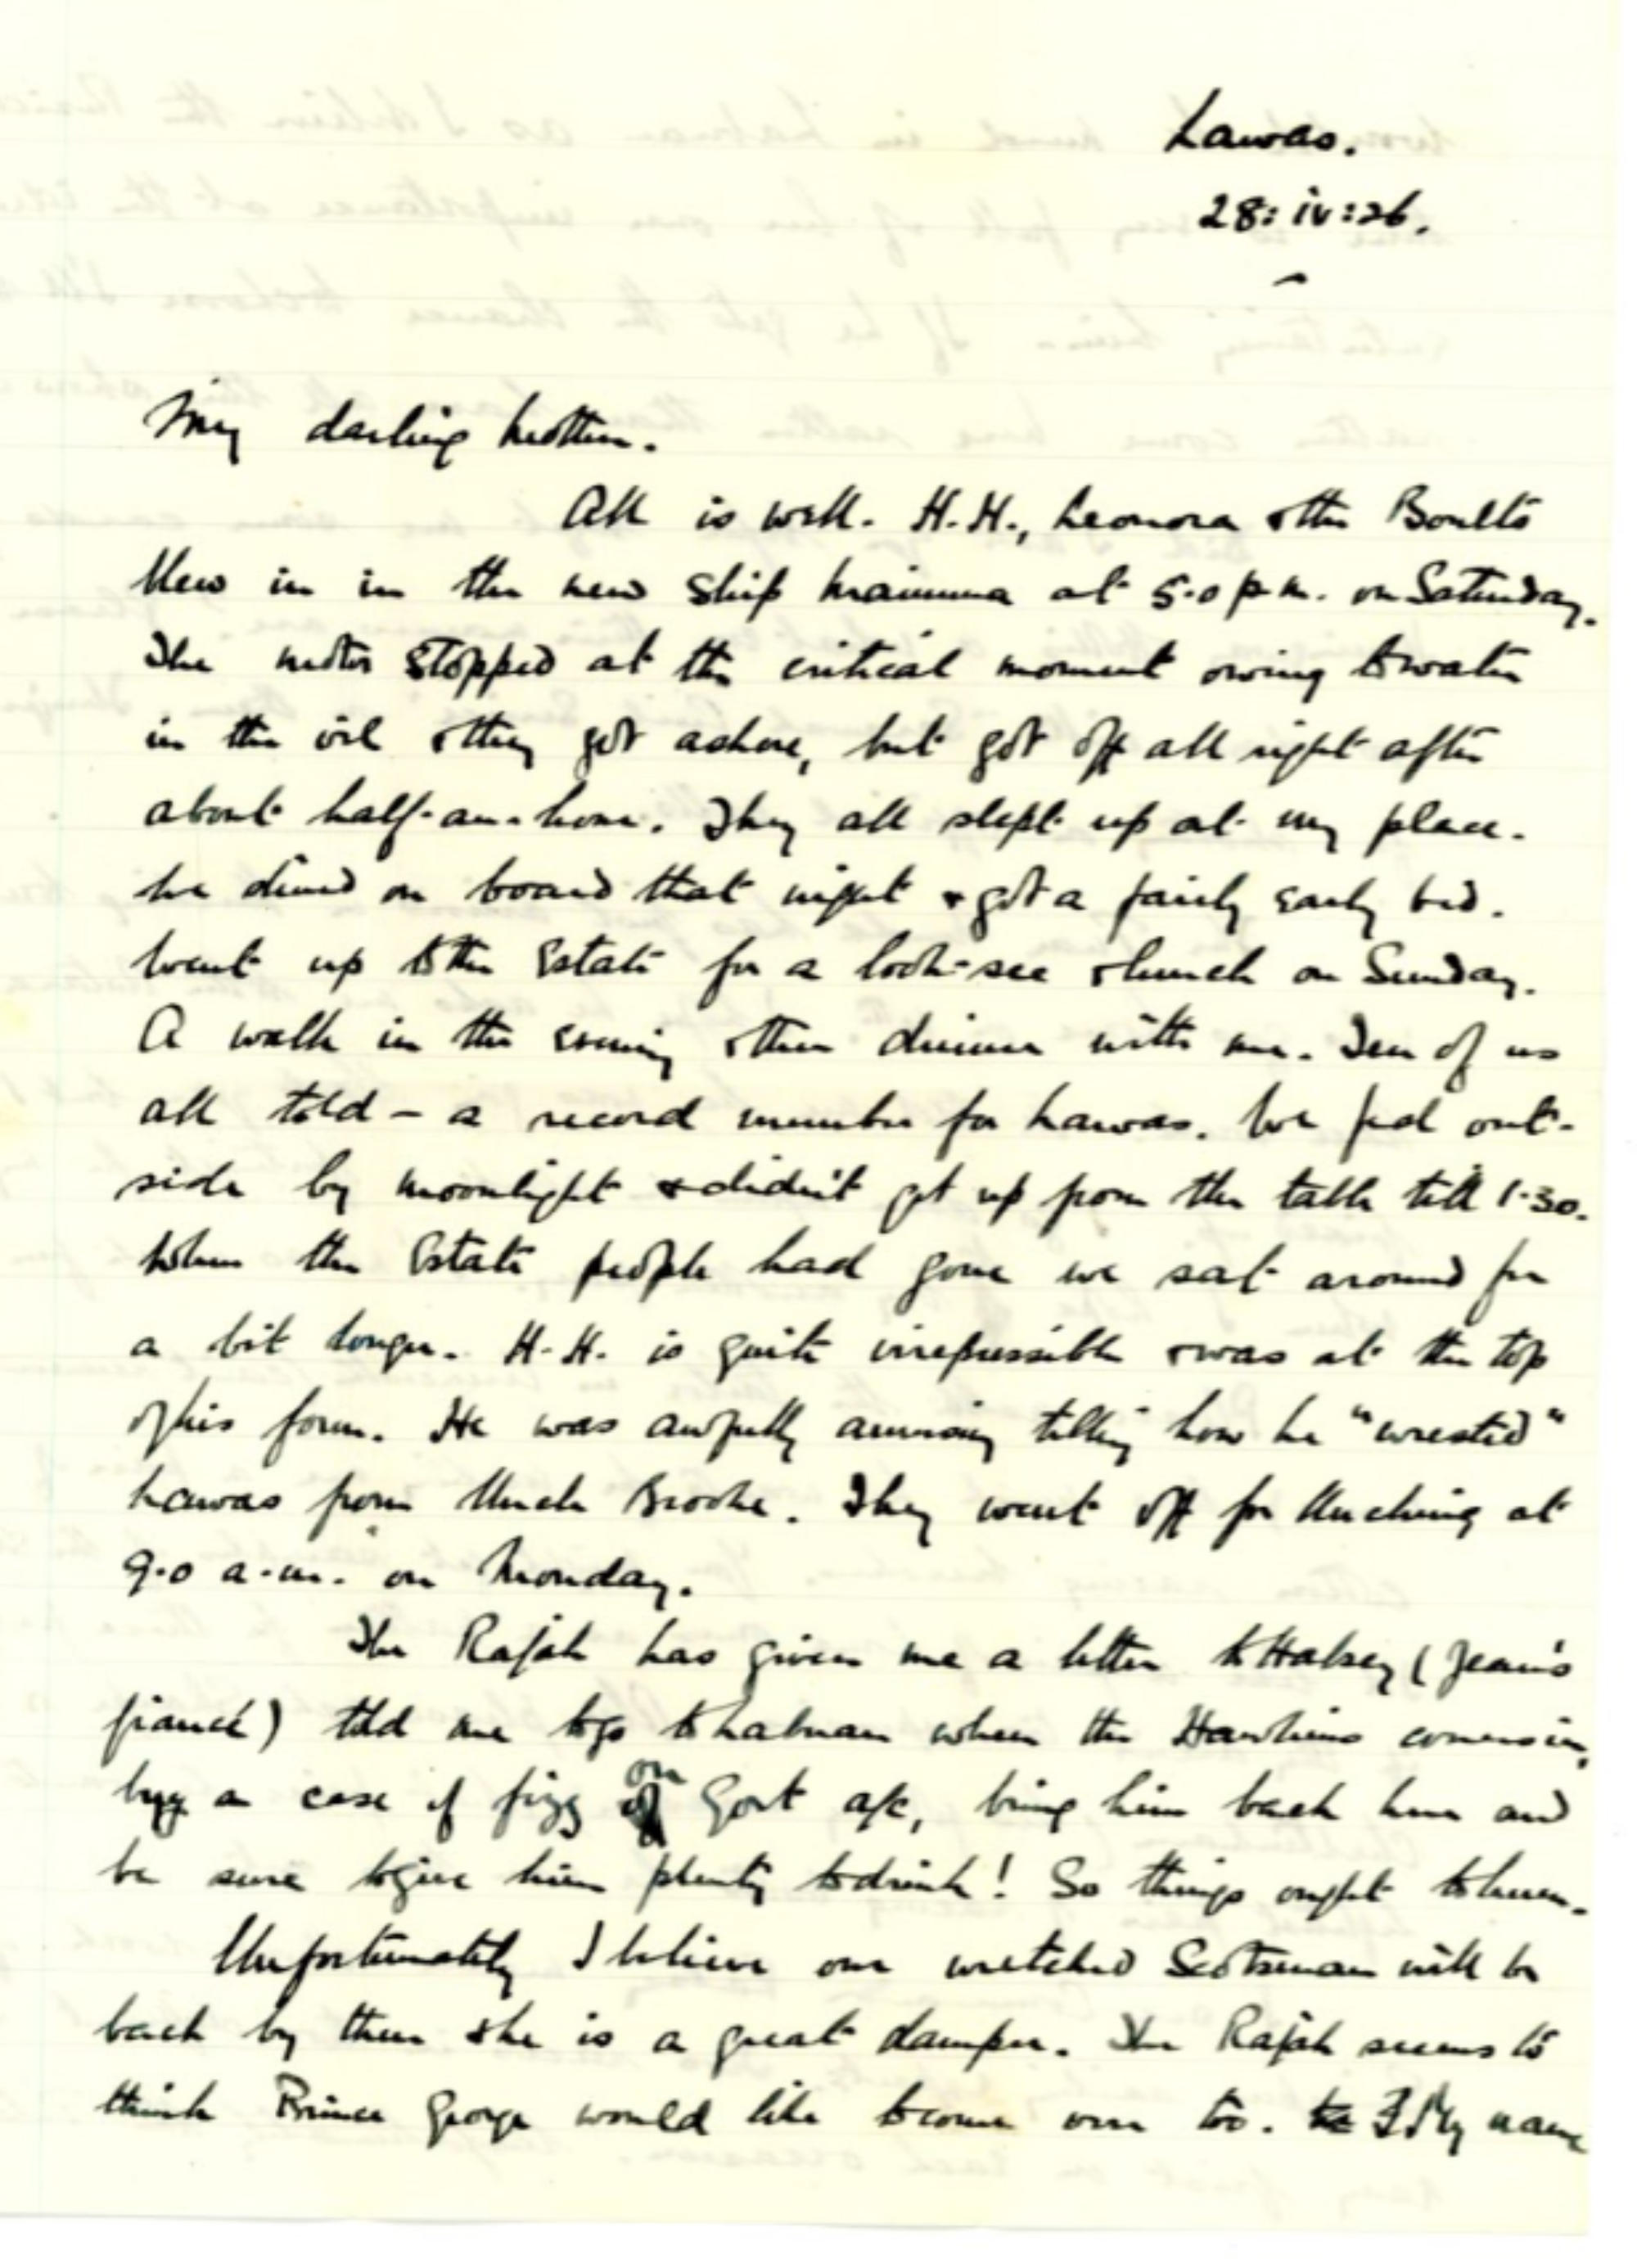 Lawas.
28: iv: 26.
My darling Mother.
All is well. H.H., Leonora & the Boults
blew in in the new ship Maimuna at 5.0 p.m. on Saturday.
The motor stopped at the critical moment owing to water
in the oil & they got ashore, but got off all right after
about half-an-hour. They all slept up at my place.
We dined on board that night & got a fairly early bed.
Went up to the Estate for a look-see & lunch on Sunday.
A walk in the evening & then dinner with me. Ten of us
all told – a record number for Lawas. We fed out-
side by moonlight & didn't get up from the table till 1.30.
When the Estate people had gone we sat around for
a bit longer. H.H. is quite irrepressible & was at the top
of his form. He was awfully amusing telling how he "wrested"
Lawas from Uncle Brooke. They went off for Kuching at
9.0 a.m. on Monday.
The Rajah has given me a letter to Halsey (Jean's
fiancé) told me to go to Labuan when the Hawkins comes in,
buy a case of fizz on Govt a/c, bring him back here and
be sure to give him plenty to drink! So things ought to hum.
Unfortunately I believe our wretched Scotsman will be
back by then & he is a great damper. The Rajah seems to
think Prince George would like to come over too. My name